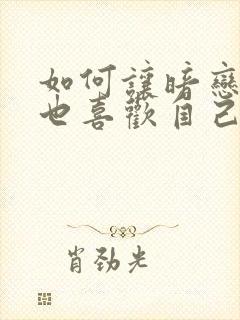 如何讓暗戀
也喜歡自己
肖勁光